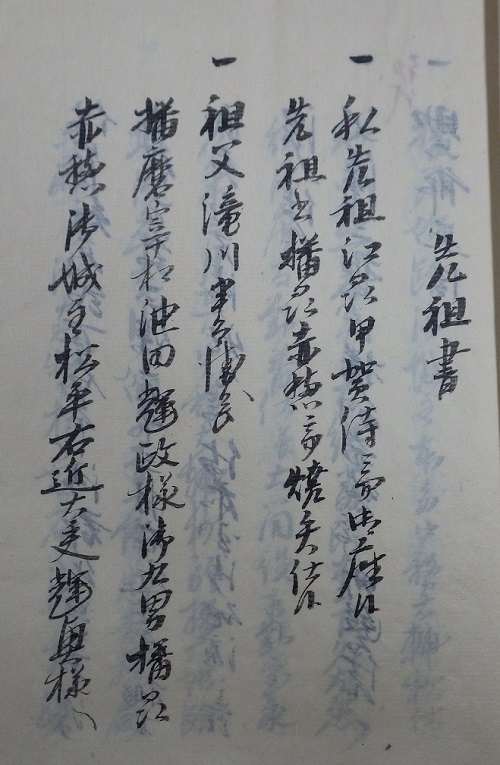 先祖書
一 私先祖江州甲賀侍ニ而御座候
先祖書播州赤穂ニ而焼失仕候
一 祖父滝川
播磨宰相池田輝政様御九男播州
赤穂御城主松平右近大夫輝興様へ